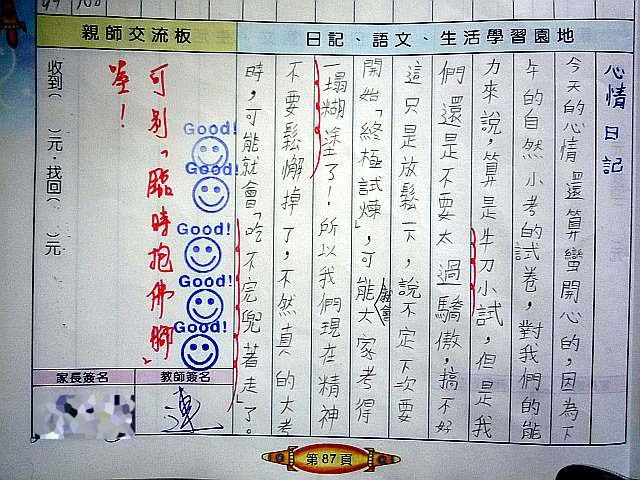 親師交流板
日記、語文、生活學習園地
心情日記
今天的心情還算蠻開心的，因為下
午的自然小考的試卷，對我們的能
力來說，算是牛刀小試，但是我
們還是不要太過驕傲，搞不好
這只是放鬆一下，說不定下次要
開始「終極試煉」，可能大家都會考得
一塌糊塗了！所以我們現在精神
不要鬆懈掉了，不然真的大考
時，可能就會「吃不完兜著走」了。
Good!
Good!
Good!
Good!
Good!
可别「臨時抱佛腳」
喔！
收到（　）元，找回（　）元
家長簽名
教師簽名
連
第87頁